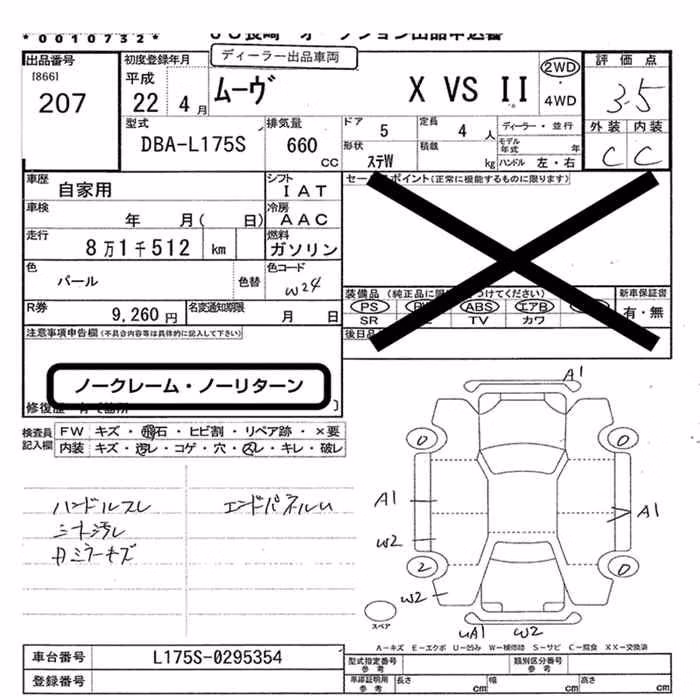 *0010732*
JU長崎 オークション出品申込書
ディーラー出品車両
出品番号
[866]
207
初度登録年月
平成
22 4月
ムーヴ X VS II
2WD
・
4WD
評価点
3.5
外装 内装
C C
型式
DBA-L175S
排気量
660
CC
ドア 5
定員 4人
ディーラー・並行
形状 ステW
積載 kg
モデル年式 年
ハンドル 左・右
車歴
自家用
シフト
IAT
セールスポイント(正常に機能するものに限ります)
車検
年 月( 日)
冷房
AAC
走行
8万1千512 km
燃料
ガソリン
色
パール
色替
色コード
W24
装備品 (純正品に限
つけてください)
新車保証書
有・無
PS
ABS エアB
SR
TV カワ
R券
9,260円
名変通知期限
月 日
後日品
注意事項申告欄(不具合内容等は具体的に記入して下さい)
ノークレーム・ノーリターン
修復歴
検査員
記入欄
FW キズ・飛石・ヒビ割・リペア跡・×要
内装 キズ・汚レ・コゲ・穴・スレ・キレ・破レ
ハンドルスレ
シート汚レ
カミラーキズ
エンドパネルU
A1
0 0
A1
A1
W2
2 0
W2
スペア
UA1 W2
A-キズ E-エクボ U-凹み W-補修跡 S-サビ C-腐食 XX-交換済
車台番号 L175S-0295354
登録番号
型式指定番号
参考
類別区分番号
参考
車庫証明用
参考
長さ cm
幅 cm
高さ cm